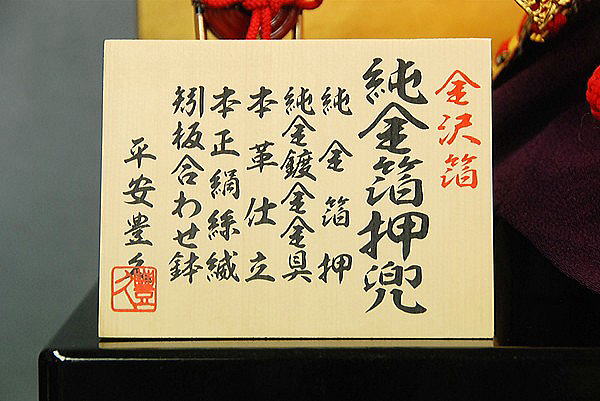 金沢箔
純金箔押兜
純金箔押
純金鍍金金具
本革仕立
本正絹絲縅
矧板合わせ鉢
平安豊久
豊久